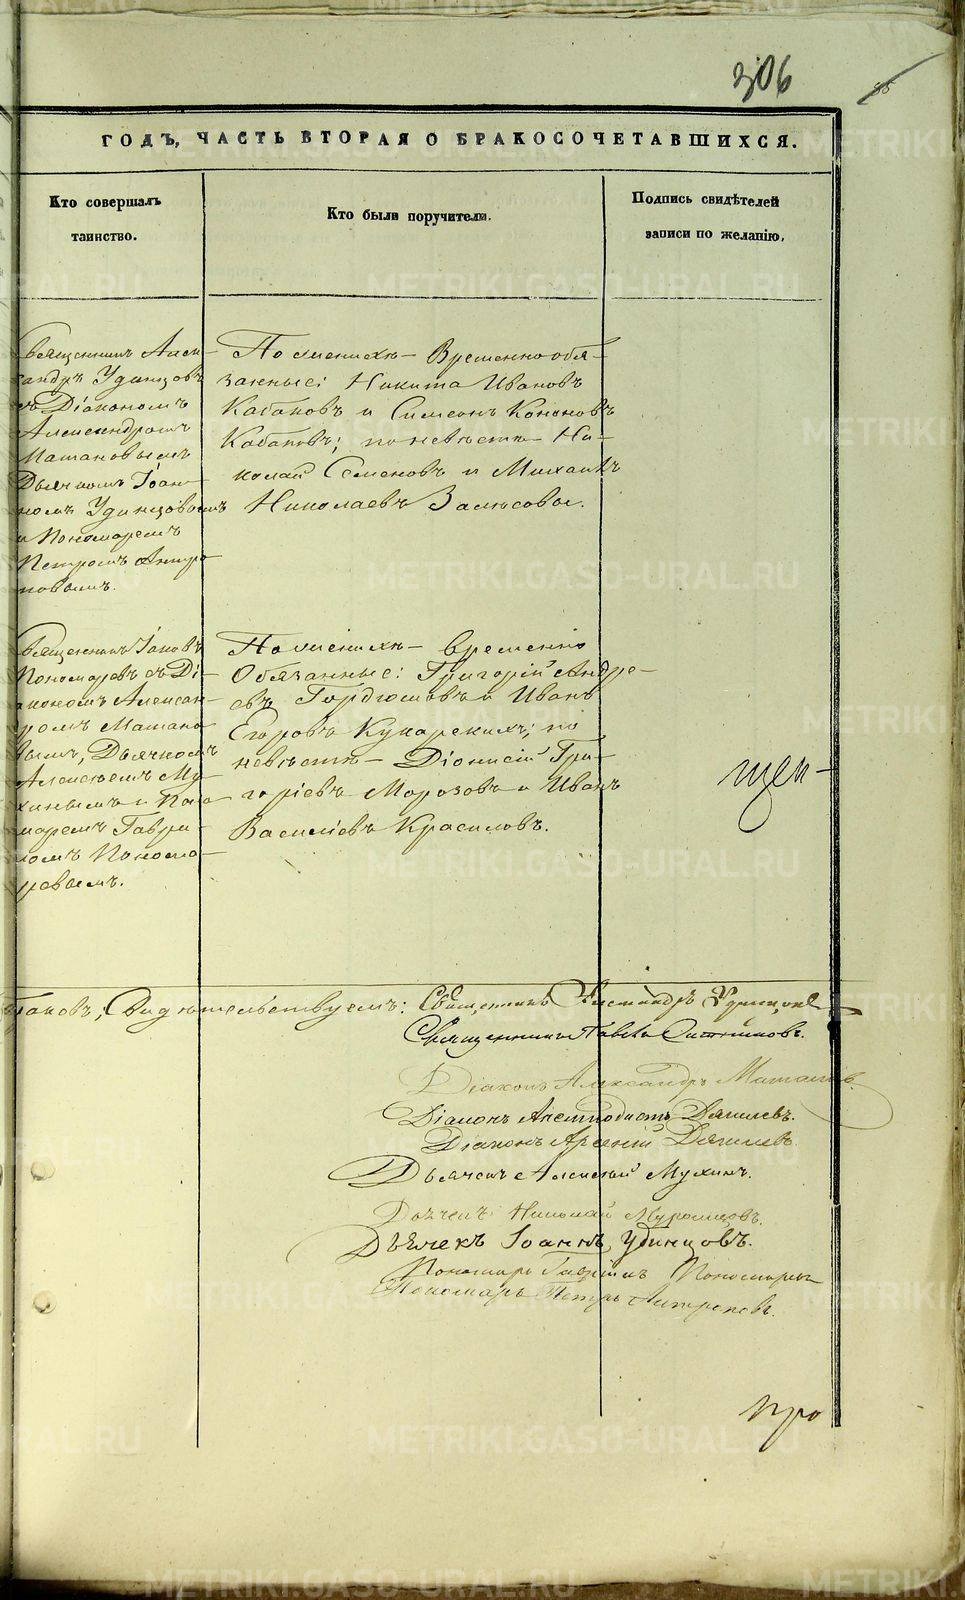 306
85
ГОДЪ, ЧАСТЬ ВТОРАЯ О БРАКОСОЧЕТАВШИХСЯ.
Кто совершалъ
таинство.
Кто были поручители.
Подпись свидѣтелей
записи по желанію.
Священникъ Алек-
сандръ Удинцовъ
съ Діакономъ
Александромъ
Матановымъ
Дьячкомъ Іоан-
номъ Удинцовымъ
и Пономаремъ
Петромъ Антро-
повымъ.
По женихѣ – Временно обя-
занные: Никита Ивановъ
Кабаковъ и Симеонъ Кононовъ
Кабаковъ; по невѣстѣ – Ни-
колай Семеновъ и Михаилъ
Николаевъ
Священникъ Іаковъ
Пономаревъ съ Ді-
акономъ Алексан-
дромъ Матано-
вымъ, Дьячкомъ
Алексѣемъ Му-
хинымъ и Поно-
маремъ Гаври-
ломъ Понома-
ревымъ.
По женихѣ – временно
Обязанные: Григорій Андре-
евъ Гордюшовъ и Иванъ
Егоровъ Кукарскихъ; по
невѣстѣ – Діонисій Гри-
горіевъ Морозовъ и Иванъ
Василіевъ Красиловъ.
щен-
Свидѣтельствуемъ: Священникъ Александръ Удинцовъ
Священникъ Павелъ
Діаконъ Александръ Матановъ.
Діаконъ Аполлодистъ Дягилевъ.
Діаконъ Арсеній Дягилевъ
Дьячекъ Алексѣй Мухинъ.
Дьячекъ Николай
Дьячекъ Іоаннъ Удинцовъ.
Пономарь Гавріилъ Пономаревъ
Пономарь Петръ Антроповъ.
про
METRIKI.GASO-URAL.RU